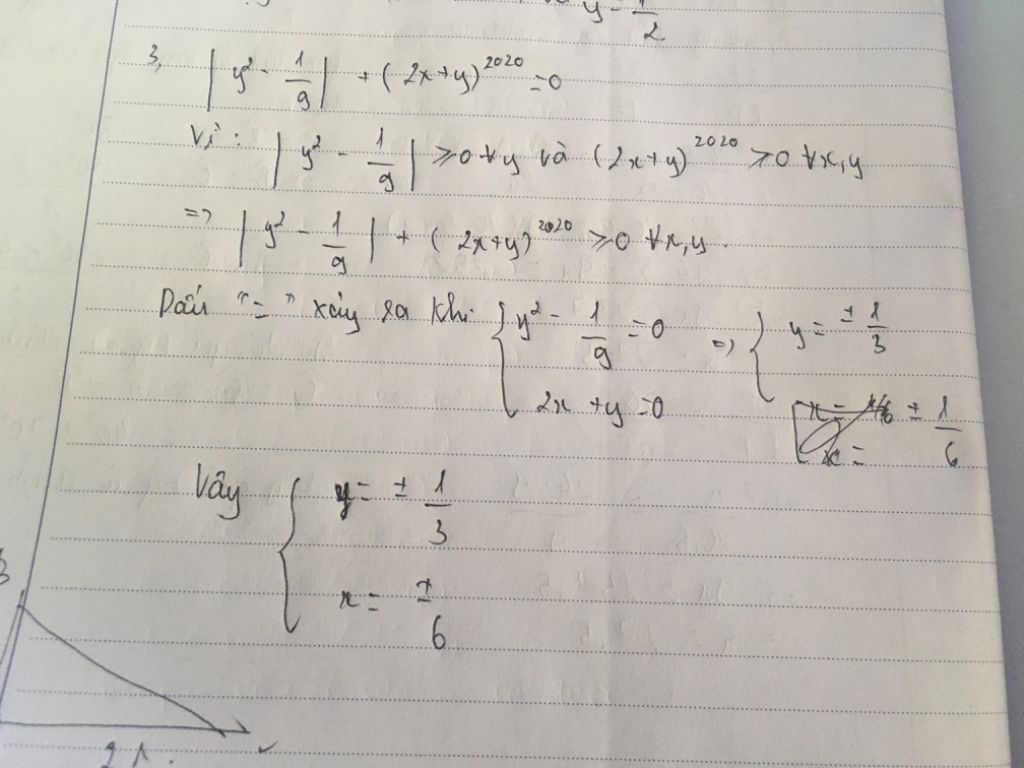 y = 1/2
3, | y² - 1/9 | + ( 2x+y)²⁰²⁰ =0
Vì : | y² - 1/9 | ⩾0 ∀y và (2x+y)²⁰²⁰ ⩾0 ∀x,y
=> | y² - 1/9 | + ( 2x+y)²⁰²⁰ ⩾0 ∀x,y.
Dấu "=" xảy ra khi { y² - 1/9 =0 => { y= ± 1/3
2x +y =0 x= ± 1/6
x=
Vậy { y= ± 1/3
x= ±/6